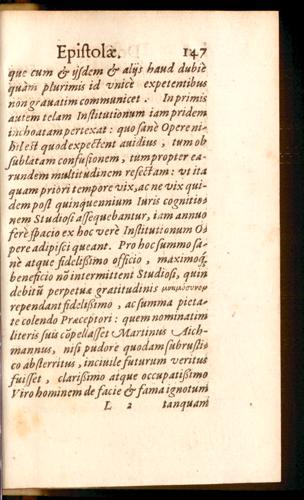 Epistolæ. 147
que cum & ijsdem & alijs haud dubiè
quàm plurimis id vnicè expetentibus
non grauatim communicet. In primis
autem telam Institutionum iam pridem
inchoatam pertexat: quo sanè Opere ni-
hil est quod expectent auidius, tum ob
sublatam confusionem, tum propter ea-
rundem multitudinem resectam: vt ita
quam priori tempore vix, ac ne vix qui-
dem post quinquennium Iuris cognitio-
nem Studiosi assequebantur, iam annuo
ferè spacio ex hoc verè Institutionum O-
pere adipisci queant. Pro hoc summo sa-
nè atque fidelißimo officio, maximoq́;
beneficio nõ intermittent Studiosi, quin
debitũ perpetuæ gratitudinis μνημόσυνον
rependant fidelißimo, ac summa pieta-
te colendo Præceptori: quem nominatim
literis suis cõpellasset Martinus Aich-
mannus, nisi pudore quodam subrusti-
co absterritus, inciuile futurum veritus
fuisset, clarißimo atque occupatißimo
Viro hominem de facie & fama ignotum
L 2 tanquam